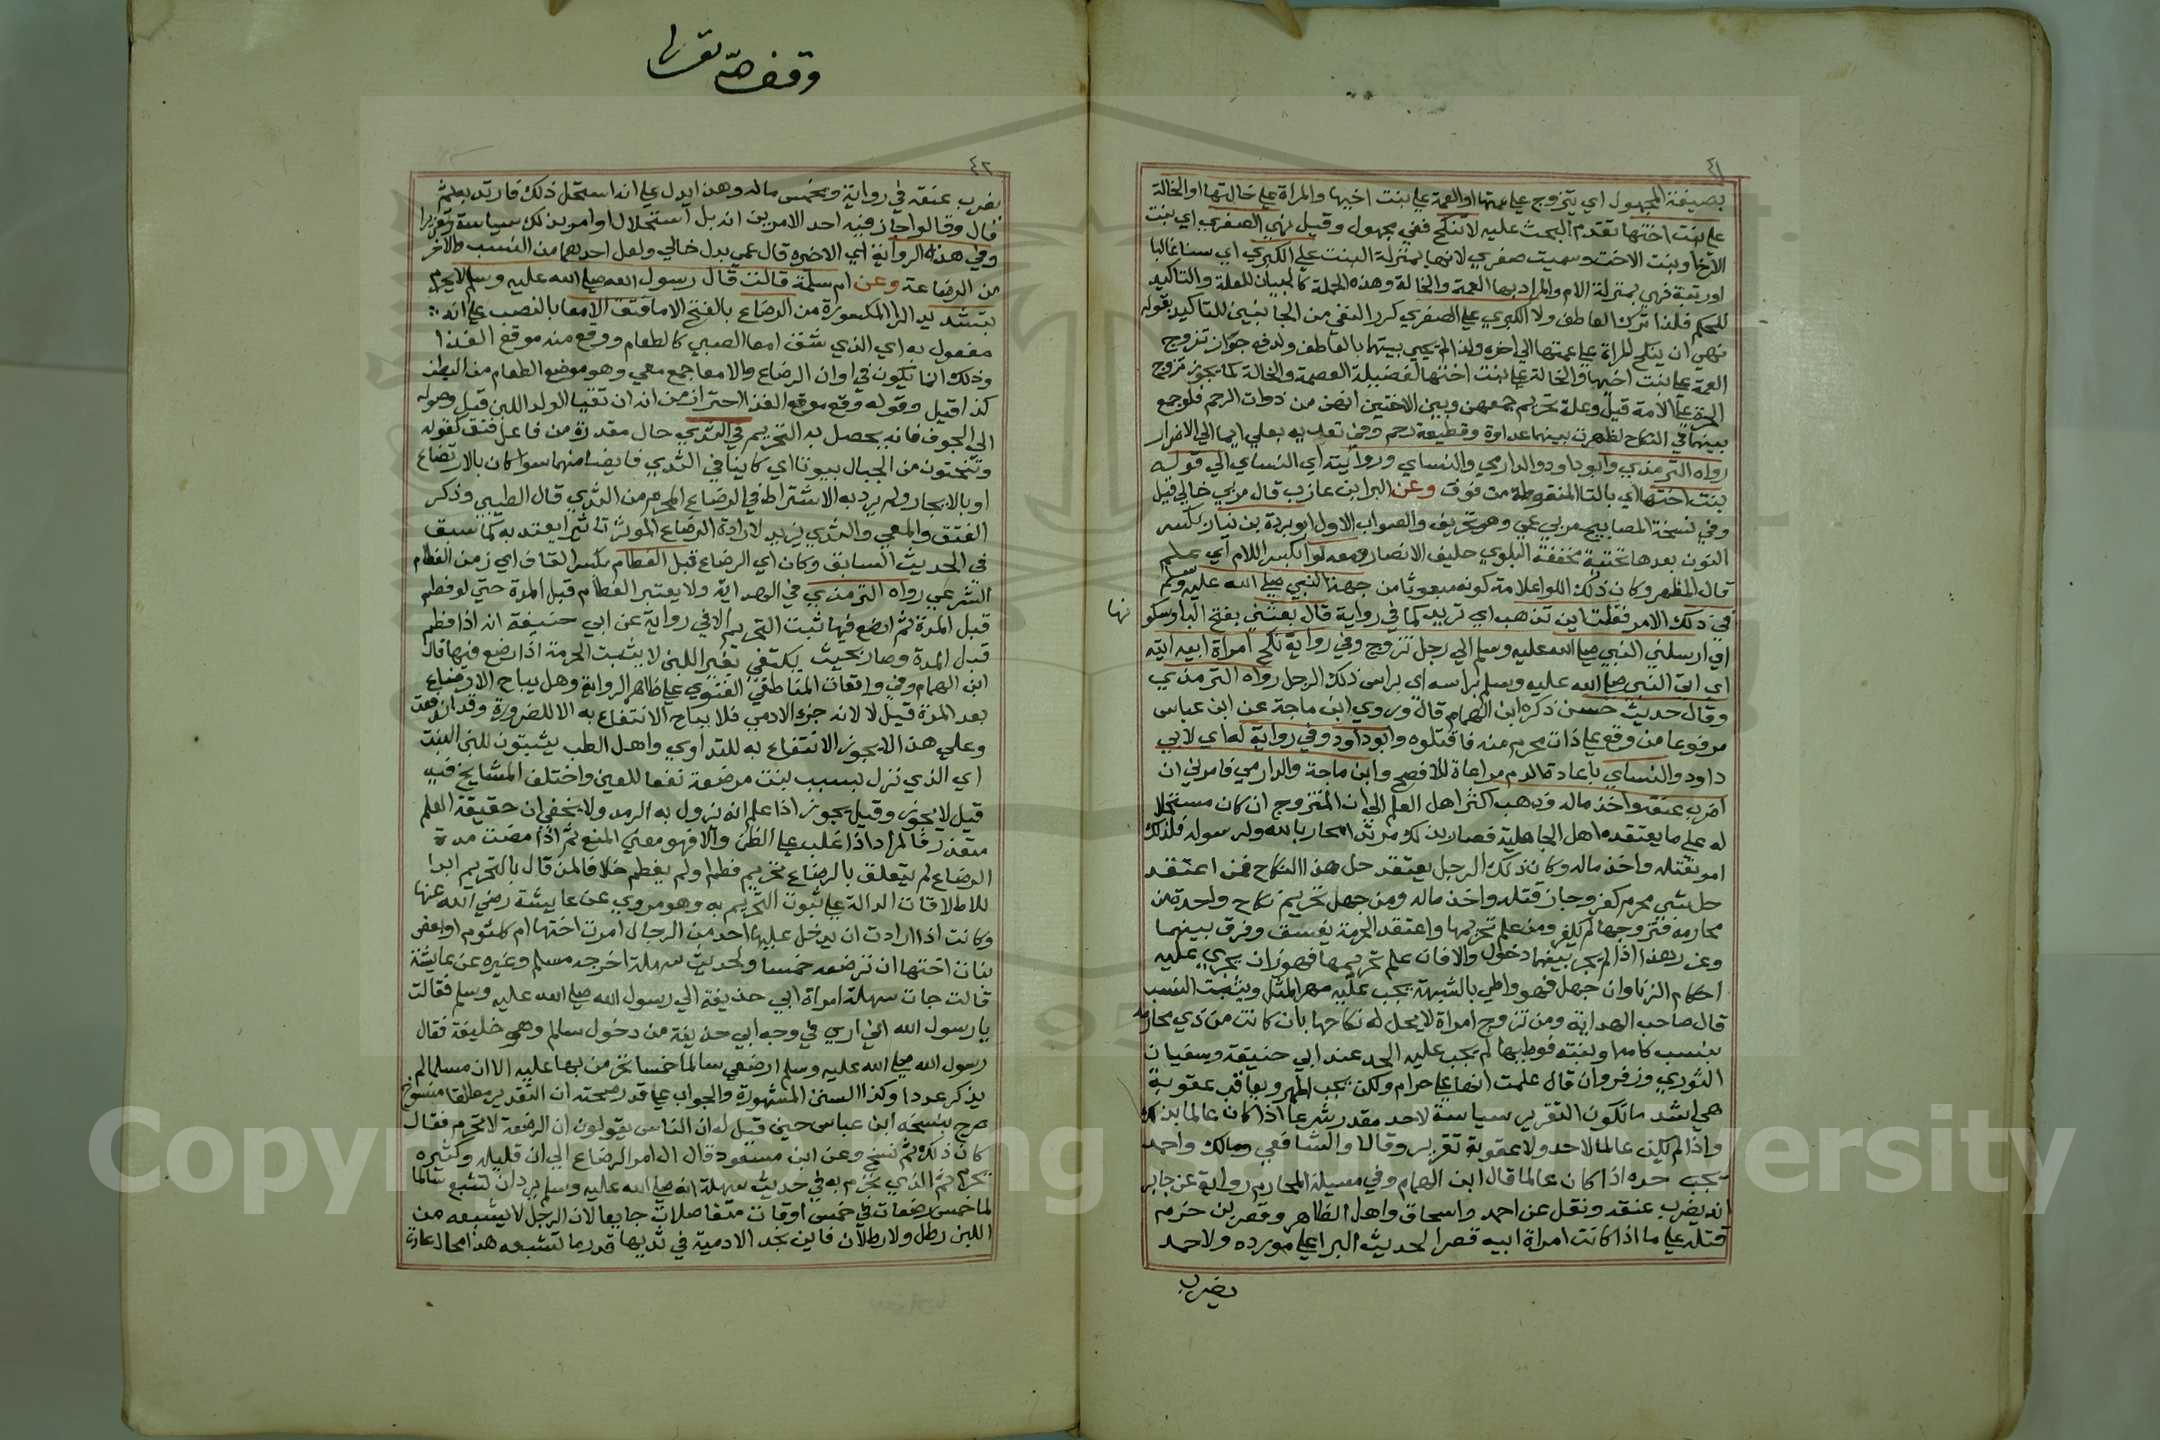 ٤١
بصيغة المجهول اي يتزوج علي عمتها او العمة علي بنت اخيها والمراة علي خالتها او الخالة
علي بنت اختها تقدم البحث عليه لا تنكح ففي مجهول وقيل نهي الصغري اي بنت
الاخ او بنت الاخت وسميت صغري لانها بمنزلة البنت علي الكبري اي سنا غالبا
او رتبة فهي بمنزلة الام والمراد بها العمة والخالة وهذه الجملة كالبيان للعلة والتاكيد
للحكم فلذا ترك العاطف ولا الكبري علي الصغري كرر النفي من الجانبين للتاكيد بقوله
نهي ان ينكح المراة علي عمتها الي اخره ولذا لم يجي بينهما بالعاطف ولدفع جواز تزوج
العمة علي بنت اخيها والخالة علي بنت اختها لفضيلة العمة والخالة كما يجوز تزوج
الحرة علي الامة قيل وعلة تحريم جمعهن وبين الاختين انهن من ذوات الرحم فلو جمع
بينهما في النكاح لظهرت بينهما عداوة وقطيعة رحم وفي تعديه بعلي ايما الي الاضرار
رواه الترمذي وابو داود والدارمي والنساي وروايته اي النساي الي قوله
بنت اختها اي بالتا المنقوطة من فوق وعن البرا بن عازب قال مر بي خالي قيل
وفي نسخة المصابيح مر بي عمي وهو تحريف والصواب الاول ابو بردة بن نيار بكسر
النون بعدها تحتية مخففة البلوي حليف الانصار ومعه لوا بكسر اللام اي علم
قال المظهر وكان ذلك اللوا علامة كونه مبعوثا من جهة النبي صلي الله عليه وسلم
في ذلك الامر فقلت اين تذهب اي تريد كما في رواية قال بعثني بفتح البا وسكو
نها
اي ارسلني النبي صلي الله عليه وسلم الي رجل تزوج وفي رواية نكح امراة ابيه اتيه
اي اتي النبي صلي الله عليه وسلم براسه اي براس ذلك الرجل رواه الترمذي
وقال حديث حسن ذكره ابن الهمام قال وروي ابن ماجة عن ابن عباس
مرفوعا من وقع علي ذات محرم منه فاقتلوه وابو داود وفي رواية له اي لابي
داود والنساي باعادة الام مراعاة للافصح وابن ماجة والدارمي فامرني ان
اضرب عنقه واخذ ماله ذهب اكثر اهل العلم الي ان المتزوج ان كان مستحلا
له علي ما يعتقده اهل الجاهلية فصار بذلك مرتدا محاربا لله ولرسوله فلذلك
امر بقتله واخذ ماله وكان ذلك الرجل يعتقد حل هذا النكاح فمن اعتقد
حل شي محرم كفر وجاز قتله واخذ ماله ومن جهل تحريم نكاح واحدة من
محارمه فتزوجها لم يكفر ومن علم تحريمها واعتقد الحرمة يفسق وفرق بينهما
وعزر هذا اذا لم يجر بينهما دخول والا فان علم تحريمها فهو زان يجري عليه
احكام الزنا وان جهل فهو واطي بالشبهة يجب عليه مهر المثل ويثبت النسب
قال صاحب الهداية ومن تزوج امراة لا يحل له نكاحها بان كانت من ذي محارمه
بنسب كامه او بنته فوطيها لم يجب عليه الحد عند ابي حنيفة وسفيان
الثوري وزفر وان قال علمت انها علي حرام ولكن يجب المهر ويعاقب عقوبة
هي اشد ما تكون التقرير سياسة لا حد مقدر شرعا اذا كان عالما بذلك
واذا لم يكن عالما لا حد ولا عقوبة تقرير وقالا والشافعي ومالك واحمد
يجب حده اذا كان عالما قال ابن الهمام وفي مسيلة المحارم رواية عن جابر
انه يضرب عنقه ونقل عن احمد واسحاق واهل الظاهر وقصر بن حزم
قتله علي ما اذا كانت امراة ابيه قصرا لحديث البرا علي مورده ولاحمد
يضرب
وقف لله تعالى
٤٢
يضرب عنقه في رواية ويخمس ماله وهذا يدل علي انه استحل ذلك فارتد به ثم
قال وقالوا جاز فيه احد الامرين انه بل استحلال او امر بذلك سياسة وتعزيرا
وفي هذه الرواية اي الاخيرة قال عمي بدل خالي ولعل احدهما من النسب والاخر
من الرضاعة وعن ام سلمة قالت قال رسول الله صلي الله عليه وسلم لا يحرم
بتشديد الرا المكسورة من الرضاع بالفتح الا ما فتق الامعا بالنصب علي انه
مفعول به اي الذي شق امعا الصبي كالطعام ووقع منه موقع الغذا
وذلك انما يكون في اوان الرضاع والامعا جمع معي وهو موضع الطعام من البطن
كذا قيل وقوله وقع موقع الغذا احتراز من انه ان تقيا الولد اللبن قبل وصوله
الي الجوف فانه يحصل به التحريم في الثدي حال مقدرة من فاعل فتق كقوله
وتنحتون من الجبال بيوتا اي كاينا في الثدي فايضا منهما سوا كان بالارتضاع
او بالايجار ولم يرد به الاشتراط في الرضاع المحرم من الثدي قال الطيبي وذكر
الفتق والمعي والثدي يزيد لارادة الرضاع الموثر تاثيرا يعتد به كما سبق
في الحديث السابق وكان اي الرضاع قبل الفطام بكسر الفا اي زمن الفطام
الشرعي رواه الترمذي في الهداية ولا يعتبر الفطام قبل المدة حتي لو فطم
قبل المدة ثم ارضع فيها ثبت التحريم الا في رواية عن ابي حنيفة انه اذا فطم
قبل المدة وصار بحيث يكتفي بغير اللبن لا يثبت الحرمة اذا رضع فيها قال
ابن الهمام وفي واقعات الناطفي الفتوي علي ظاهر الرواية وهل يباح الارضاع
بعد المدة قيل لا لانه جزء الادمي فلا يباح الانتفاع به الا للضرورة وقد اندفعت
وعلي هذا لا يجوز الانتفاع به للتداوي واهل الطب يثبتون للبن البنت
اي الذي نزل بسبب بنت مرضعة نفعا للعين واختلف المشايخ فيه
قيل لا يجوز وقيل يجوز اذا علم انه يزول به الرمد ولا يخفي ان حقيقة العلم
متعذر فالمراد اذا غلب علي الظن والا فهو معني المنع ثم اذا مضت مدة
الرضاع لم يتعلق بالرضاع تحريم فطم او لم يفطم خلافا لمن قال بالتحريم ابدا
للاطلاقات الدالة علي ثبوت التحريم به وهو مروي عن عايشة رضي الله عنها
وكانت اذا ارادت ان يدخل عليها احد من الرجال امرت اختها ام كلثوم او بعض
بنات اختها ان ترضعه خمسا ولحديث سهلة اخرجه مسلم وغيره عن عايشة
قالت جات سهلة امراة ابي حذيفة الي رسول الله صلي الله عليه وسلم فقالت
يا رسول الله اني اري في وجه ابي حذيفة من دخول سالم وهو حليفه فقال
رسول الله صلي الله عليه وسلم ارضعي سالما خمسا تحرمن بها عليه الا ان مسلما لم
يذكر عددا وكذا السنن المشهورة والجواب علي قدر صحته ان التقدير مطلقا منسوخ
صرح بنسخه ابن عباس حين قيل له ان الناس يقولون ان الرضعة لا تحرم فقال
كان ذلك ثم نسخ وعن ابن مسعود قال ال امر الرضاع الي ان قليله وكثيره
يحرم ثم الذي نجزم به في حديث سهلة انه صلي الله عليه وسلم لم يرد ان تشبع سالما
لما خمس رضعات في خمس اوقات متفاصلات جايعا لان الرجل لا يشبعه من
اللبن رطل ولا رطلان فاين تجد الادمية في ثديها قدر ما تشبعه هذا محال عادة
Copyright © King Saud University